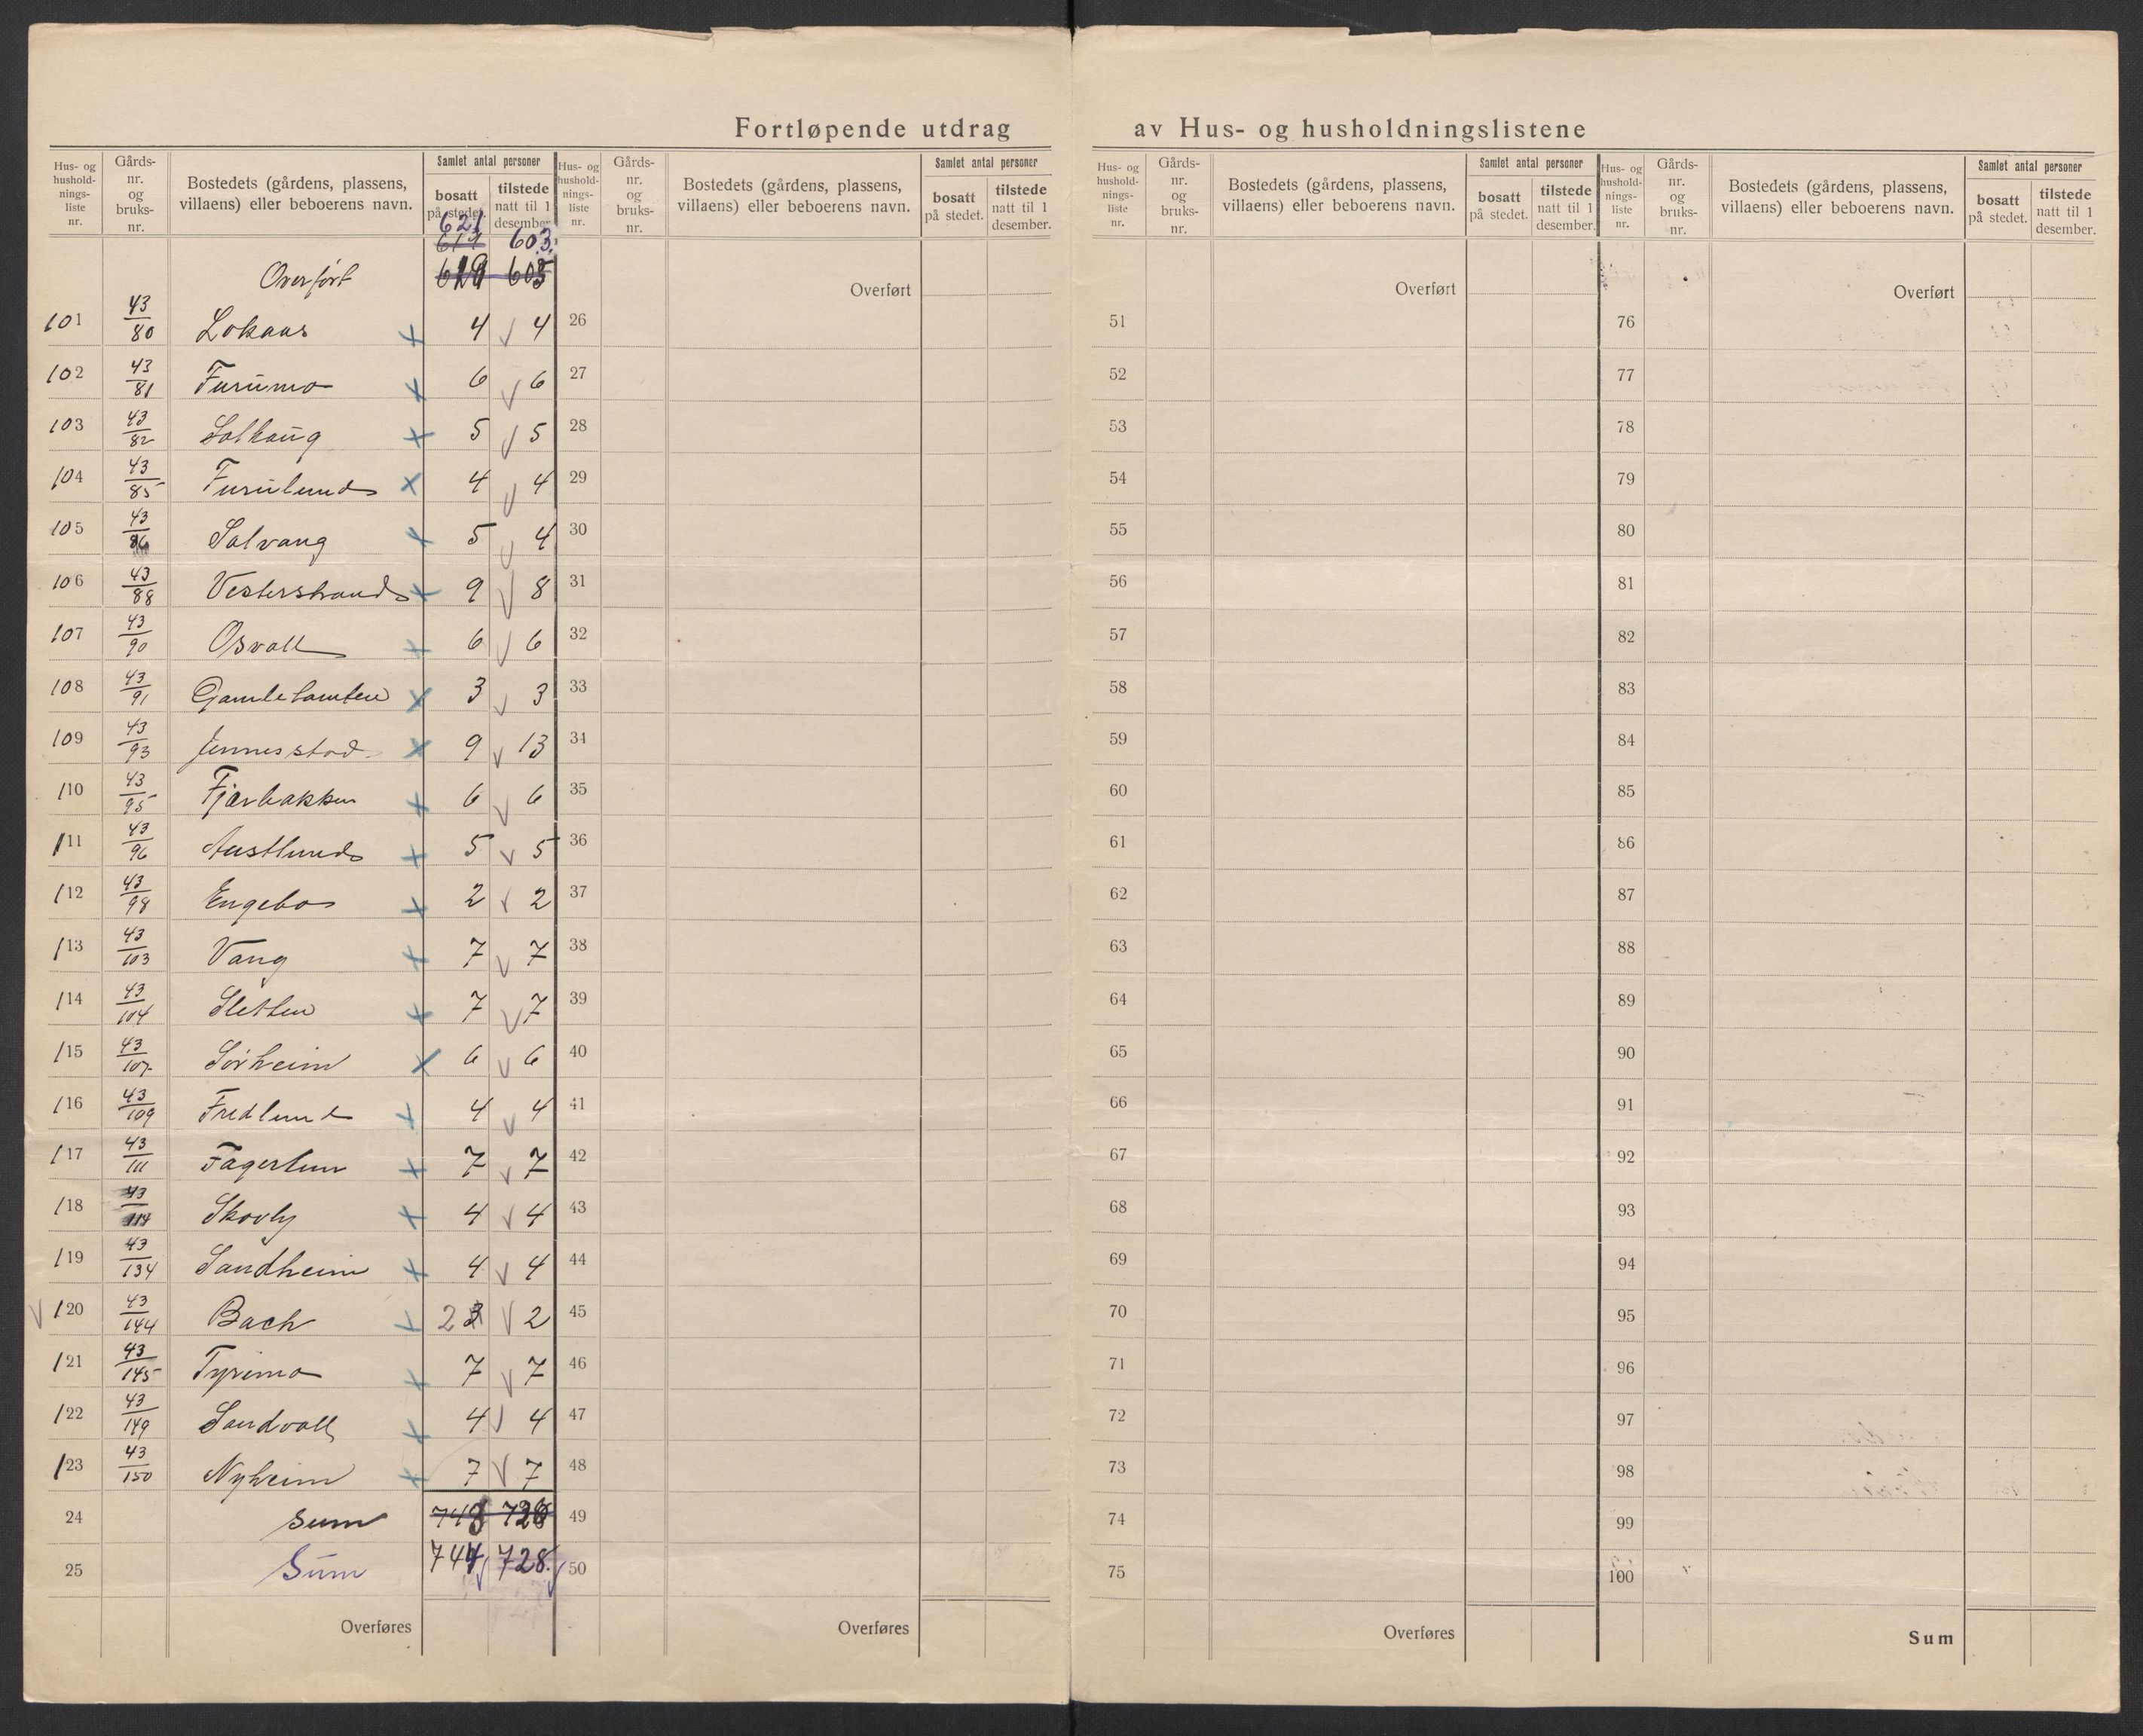 Fortløpende utdrag av Hus- og husholdningslistene
Hus- og husholdnings- liste nr. | Gårds- nr. og bruks- nr. | Bostedets (gårdens, plassens, villaens) eller beboerens navn. | Samlet antal personer | bosatt på stedet. | tilstede natt til 1 desember.
621 603
Overført 619 605
101 43/80 Lokaas 4 4
102 43/81 Furumo 6 6
103 43/82 Solhaug 5 5
104 43/85 Furulund 4 4
105 43/86 Solvang 5 4
106 43/88 Vesterstrand 9 8
107 43/90 Osvoll 6 6
108 43/91 Gamletomten 3 3
109 43/93 Jennesstad 9 13
110 43/95 Fjærbakken 6 6
111 43/96 Austlund 5 5
112 43/98 Engebo 2 2
113 43/103 Vang 7 7
114 43/104 Sletten 7 7
115 43/107 Sörheim 6 6
116 43/109 Fredlund 4 4
117 43/111 Fagertun 7 7
118 43/114 Skovly 4 4
119 43/134 Sandheim 4 4
120 43/144 Bach 2 3 2
121 43/145 Tyrimo 7 7
122 43/149 Sandvoll 4 4
123 43/150 Nyheim 7 7
24 Sum 743 728
25 Sum 744 728
Overføres
Hus- og husholdnings- liste nr. | Gårds- nr. og bruks- nr. | Bostedets (gårdens, plassens, villaens) eller beboerens navn. | Samlet antal personer | bosatt på stedet. | tilstede natt til 1 desember.
Overført
26
27
28
29
30
31
32
33
34
35
36
37
38
39
40
41
42
43
44
45
46
47
48
49
50
Overføres
Hus- og husholdnings- liste nr. | Gårds- nr. og bruks- nr. | Bostedets (gårdens, plassens, villaens) eller beboerens navn. | Samlet antal personer | bosatt på stedet. | tilstede natt til 1 desember.
Overført
51
52
53
54
55
56
57
58
59
60
61
62
63
64
65
66
67
68
69
70
71
72
73
74
75
Overføres
Hus- og husholdnings- liste nr. | Gårds- nr. og bruks- nr. | Bostedets (gårdens, plassens, villaens) eller beboerens navn. | Samlet antal personer | bosatt på stedet. | tilstede natt til 1 desember.
Overført
76
77
78
79
80
81
82
83
84
85
86
87
88
89
90
91
92
93
94
95
96
97
98
99
100
Sum